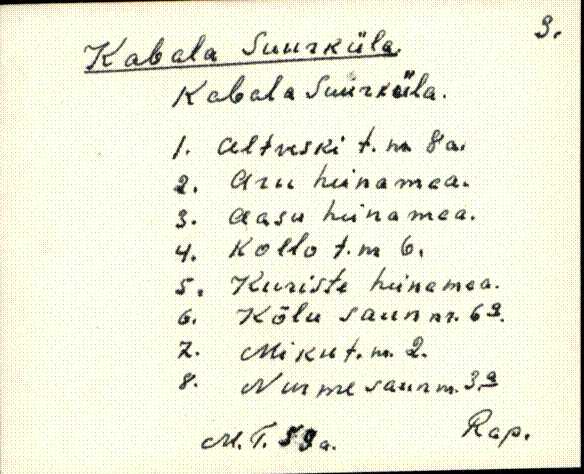 3.
Kabala Suurküla
Kabala Suurküla.
1. Altveski t. nr 8a.
2. Aru heinamaa.
3. Aasu heinamaa.
4. Kollo t. nr 6.
5. Kuriste heinamaa.
6. Kõlu saun nr. 6a.
7. Miku t. nr. 2.
8. Nurme saun nr. 3a
M. T. 59a. Rap.